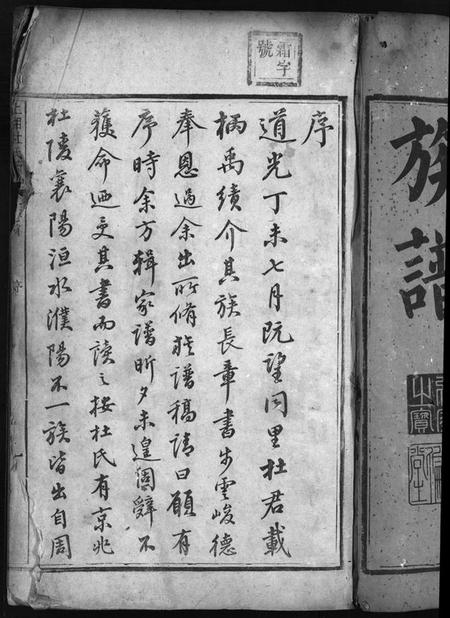 族譜
霜字
號
序
道光丁未七月既望同里杜君載
柄禹績介其族長章書步雲峻德
奉恩過余出所脩族譜稿請曰願有
序時余方輯家譜昕夕未遑固辭不
獲命迺受其書而讀之按杜氏有京兆
杜陵襄陽洹水濮陽不一族皆出自周